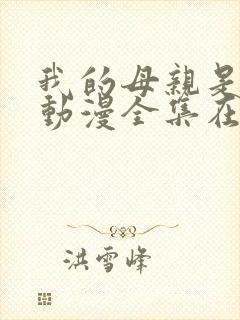 我的母親是
動漫全集在
洪雪峰